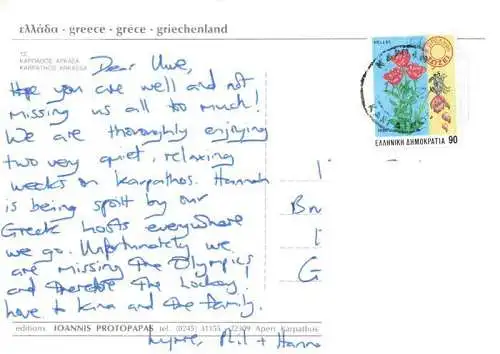 ελλάδα - greece - grèce - griechenland
ΚΑΡΠΑΘΟΣ ΑΡΚΑΣΑ
KARPATHOS ARKASSA
Dear Uwe,
Hope you are well and not
missing us all too much!
We are thoroughly enjoying
two very quiet, relaxing
weeks on Karpathos. Hannah
is being spoilt by our
Greek hosts everywhere
we go. Unfortunately we
are missing the Olympics
and therefore the
love to Kina and the family.
Lynne, Phil + Hanna
HELLAS
ΕΛΛΗΝΙΚΗ ΔΗΜΟΚΡΑΤΙΑ 90
Bn
G
editions IOANNIS PROTOPAPAS tel. (0245) 31155 - 22309 Aperi Karpathos